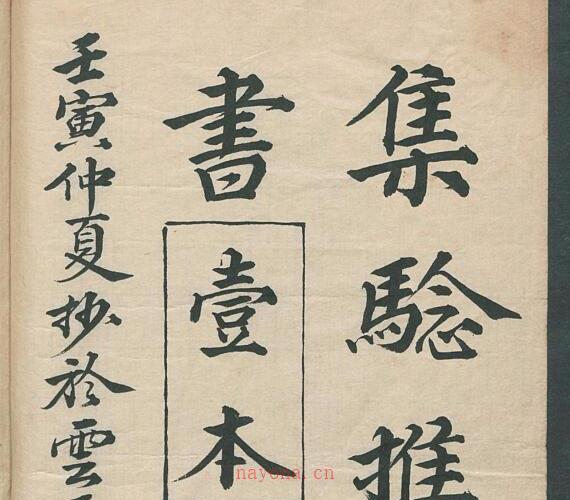 集騐推
書壹本
壬寅仲夏抄於雲
nayona.cn